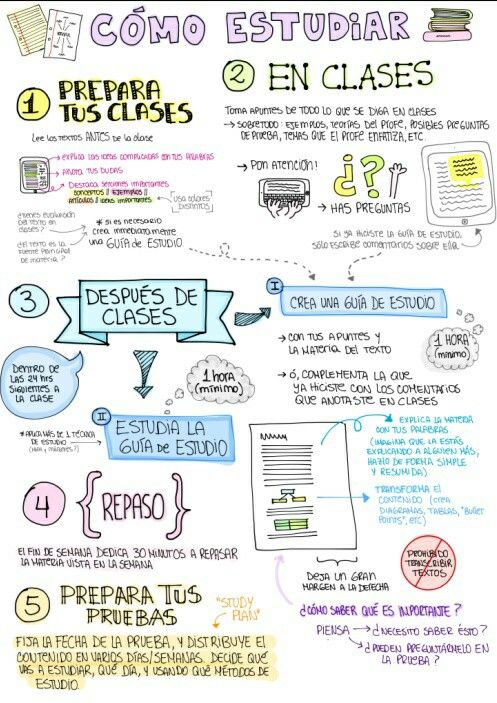 CÓMO ESTUDIAR
1 PREPARA
TUS CLASES
Lee los textos ANTES de la clase
→ explica las ideas complicadas con tus palabras
→ Anota tus dudas
→ Destaca secciones importantes
conceptos // ejemplos //
artículos // ideas importantes
usa colores
distintos
¿tienes evaluación
del texto en
clases?
¿El texto es la
fuente principal
de materia?
* si es necesario
crea inmediatamente
una GUÍA DE ESTUDIO
2 EN CLASES
Toma apuntes de TODO lo que se diga en clases
→ sobretodo: ejemplos, teorías del profe, posibles preguntas
de prueba, temas que el profe enfatiza, etc.
→ PON ATENCIÓN!
¿?
→ HAS PREGUNTAS
si ya hiciste la guía de estudio,
sólo escribe comentarios sobre ella
3 DESPUÉS DE
CLASES
DENTRO DE
LAS 24 hrs
SIGUIENTES A
LA CLASE
1 hora
(mínimo)
I
CREA UNA GUÍA DE ESTUDIO
→ con tus apuntes y
la materia del texto
1 HORA
(mínimo)
→ ó, complementa la que
ya hiciste con los comentarios
que anotaste en clases
II
ESTUDIA LA
GUÍA DE ESTUDIO
* APLICA MÁS DE 1 TÉCNICA
DE ESTUDIO
EXPLICA LA MATERIA
CON TUS PALABRAS
(IMAGINA QUE LA ESTÁS
EXPLICANDO A ALGUIEN MÁS,
HAZLO DE FORMA SIMPLE
Y RESUMIDA)
TRANSFORMA EL
CONTENIDO (CREA
DIAGRAMAS, TABLAS, "BULLET
POINTS", etc)
DEJA UN GRAN
MARGEN A LA DERECHA
PROHIBIDO
TRANSCRIBIR
TEXTOS
¿CÓMO SABER QUÉ ES IMPORTANTE?
PIENSA → ¿NECESITO SABER ÉSTO?
→ ¿PUEDEN PREGUNTÁRMELO EN
LA PRUEBA?
4 { REPASO }
EL FIN DE SEMANA DEDICA 30 MINUTOS A REPASAR
LA MATERIA VISTA EN LA SEMANA
5 PREPARA TUS
PRUEBAS
"STUDY
PLAN"
FIJA LA FECHA DE LA PRUEBA, Y DISTRIBUYE EL
CONTENIDO EN VARIOS DÍAS/SEMANAS. DECIDE QUÉ
VAS A ESTUDIAR, QUÉ DÍA, Y USANDO QUÉ MÉTODOS DE
ESTUDIO.